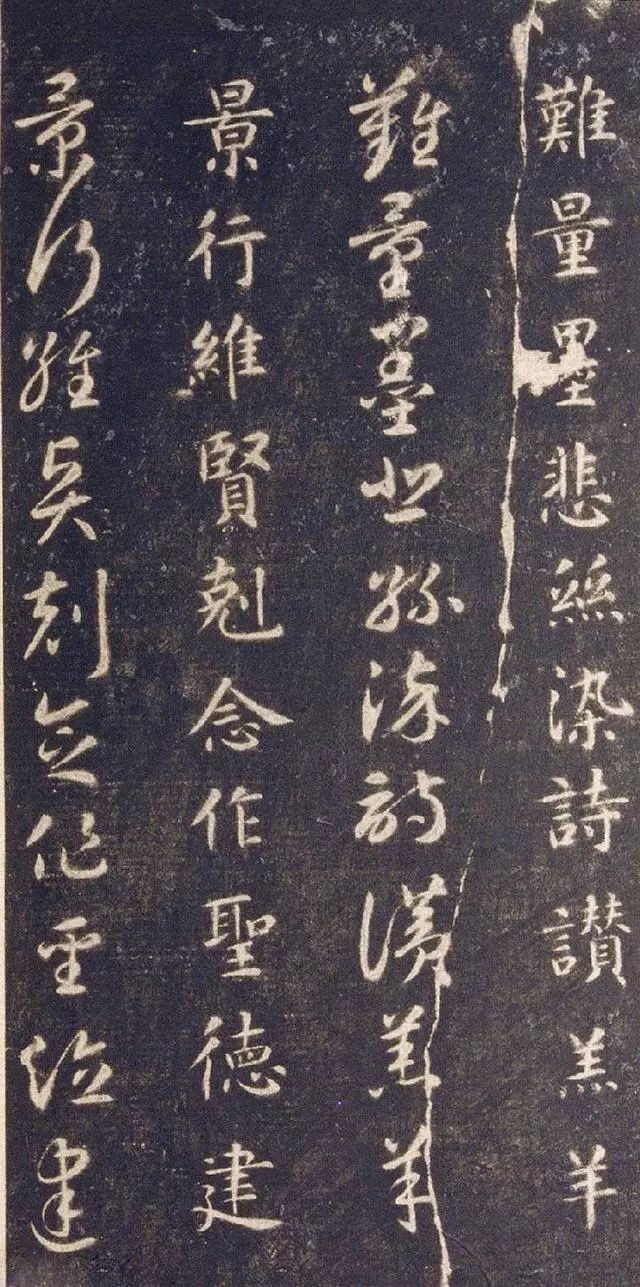 難量墨悲絲染詩讃羔羊
難量墨悲絲染詩讃羔羊
景行維賢剋念作聖德建
景行維賢剋念作聖德建